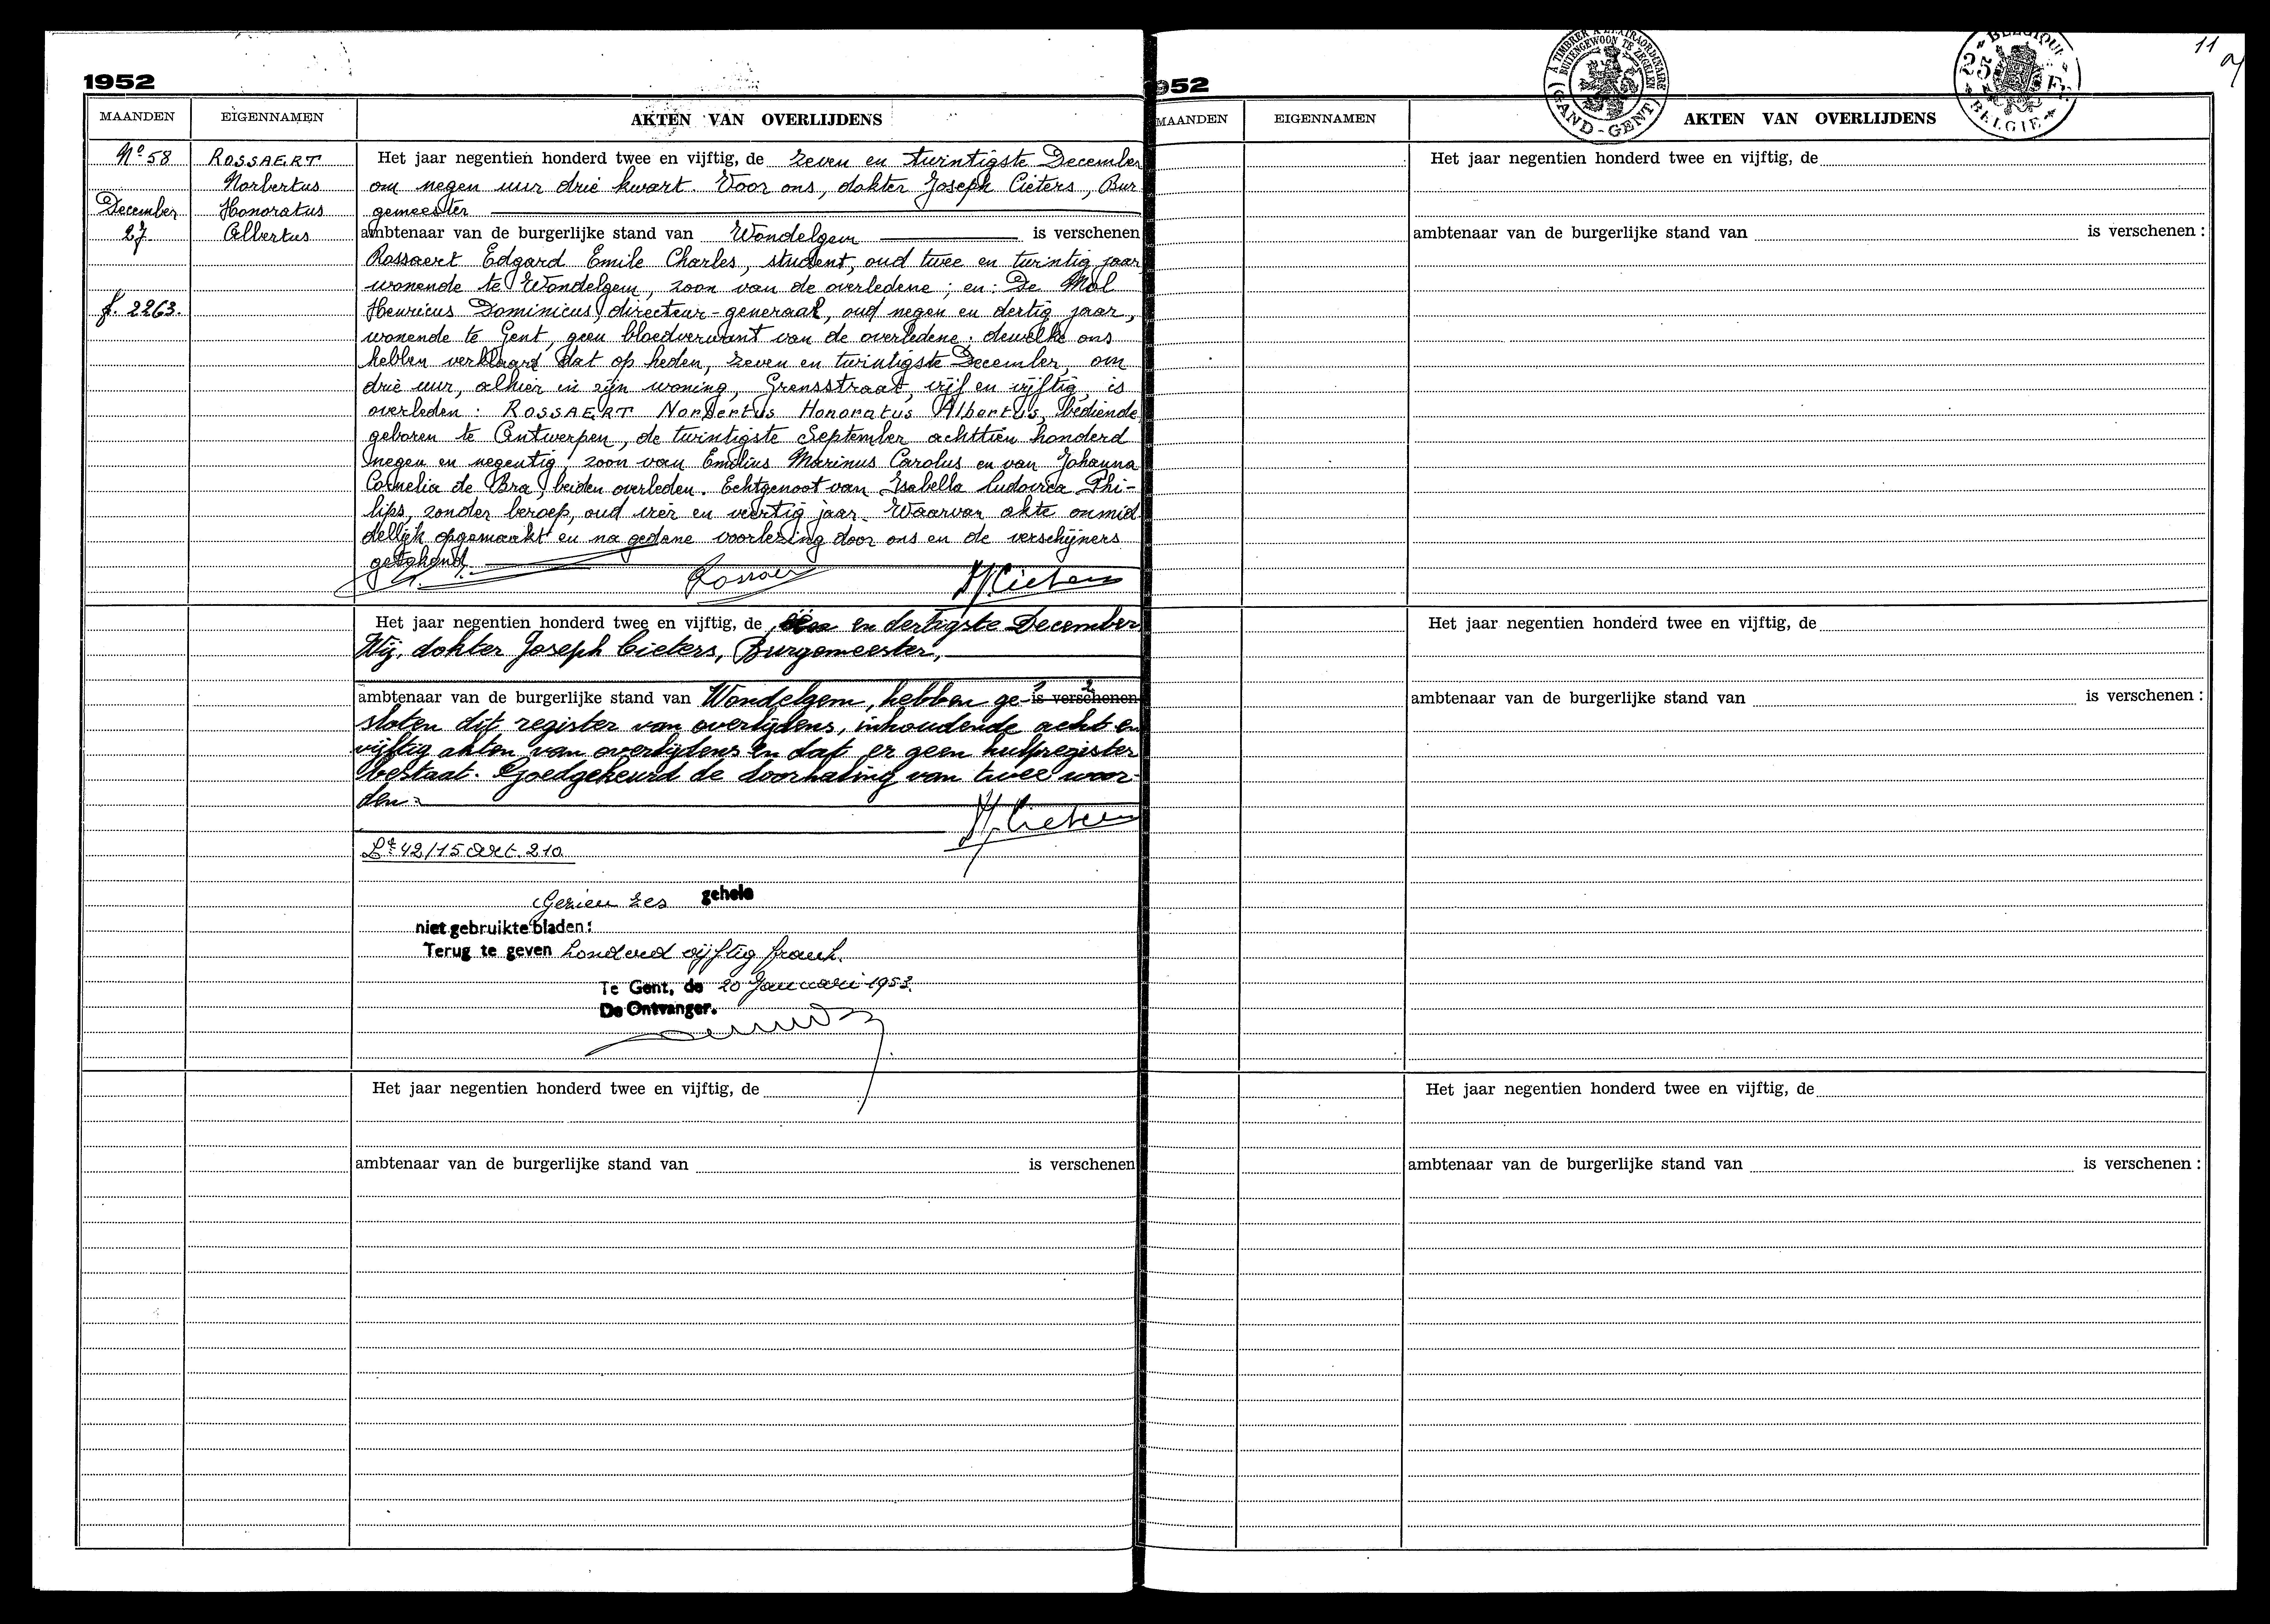 1952
MAANDEN EIGENNAMEN AKTEN VAN OVERLIJDENS
Nº 58
December
27
f. 2263.
ROSSAERT
Norbertus
Honoratus
Albertus
Het jaar negentien honderd twee en vijftig, de zeven en twintigste December
om negen uur drie kwart. Voor ons, dokter Joseph Cieters, Bur
gemeester
ambtenaar van de burgerlijke stand van Wondelgem is verschenen
Rossaert Edgard Emile Charles, student, oud twee en twintig jaar
wonende te Wondelgem, zoon van de overledene; en: De Mol
Henricus Dominicus, directeur-generaal, oud negen en dertig jaar,
wonende te Gent, geen bloedverwant van de overledene; dewelke ons
hebben verklaard dat op heden, zeven en twintigste December, om
drie uur, alhier in zijn woning, Grensstraat, vijf en vijftig, is
overleden: ROSSAERT Norbertus Honoratus Albertus, bediende
geboren te Antwerpen, de twintigste September achttien honderd
negen en negentig, zoon van Emilius Marinus Carolus en van Johanna
Cornelia de Bra, beiden overleden. Echtgenoot van Isabella Ludovica Phi-
lips, zonder beroep, oud vier en veertig jaar. Waarvan akte onmid
dellijk opgemaakt en na gedane voorlezing door ons en de verschijners
getekend.
Rossaer
J. Cieters
Het jaar negentien honderd twee en vijftig, de één en dertigste December
Wij, dokter Joseph Cieters, Burgemeester,
ambtenaar van de burgerlijke stand van Wondelgem, hebben ge- is verschenen
sloten dit register van overlijdens, inhoudende acht en
vijftig akten van overlijdens en dat er geen hulpregister
bestaat. Goedgekeurd de doorhaling van twee woor-
den.
J. Cieters
42/15 Art. 210.
Gezien zes gehele
niet gebruikte bladen:
Terug te geven honderd vijftig frank.
Te Gent, de 20 Januari 1953.
De Ontvanger.
Het jaar negentien honderd twee en vijftig, de
ambtenaar van de burgerlijke stand van is verschenen
952
A TIMBRER A L'EXTRAORDINAIRE
BUITENGEWOON TE ZEGELEN
GAND-GENT
BELGIQUE
25 FR
BELGIE
11
MAANDEN EIGENNAMEN AKTEN VAN OVERLIJDENS
Het jaar negentien honderd twee en vijftig, de
ambtenaar van de burgerlijke stand van is verschenen :
Het jaar negentien honderd twee en vijftig, de
ambtenaar van de burgerlijke stand van is verschenen :
Het jaar negentien honderd twee en vijftig, de
ambtenaar van de burgerlijke stand van is verschenen :